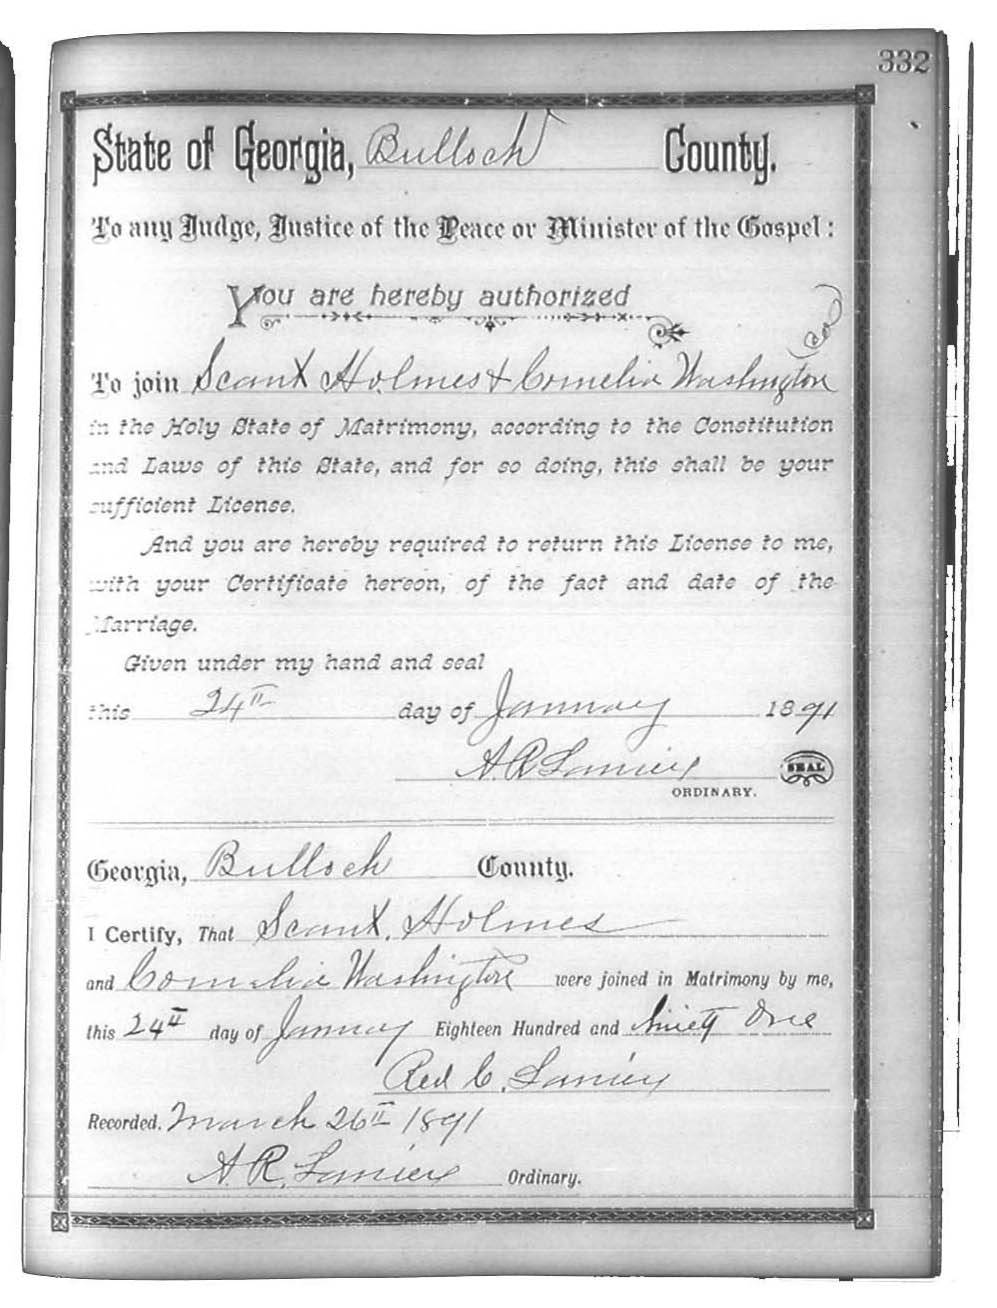 332
State of Georgia, Bulloch County.
To any Judge, Justice of the Peace or Minister of the Gospel:
You are hereby authorized
(Col)
To join Scant Holmes & Cornelia Washington
in the Holy State of Matrimony, according to the Constitution
and Laws of this State, and for so doing, this shall be your
sufficient License.
And you are hereby required to return this License to me,
with your Certificate hereon, of the fact and date of the
Marriage.
Given under my hand and seal
this 24th day of January 1891
A. R. Lanier SEAL
ORDINARY.
Georgia, Bulloch County.
I Certify, That Scant. Holmes
and Cornelia Washington were joined in Matrimony by me,
this 24th day of January Eighteen Hundred and Ninety One
C. Lanier
Recorded. March 26th 1891
A. R. Lanier Ordinary.